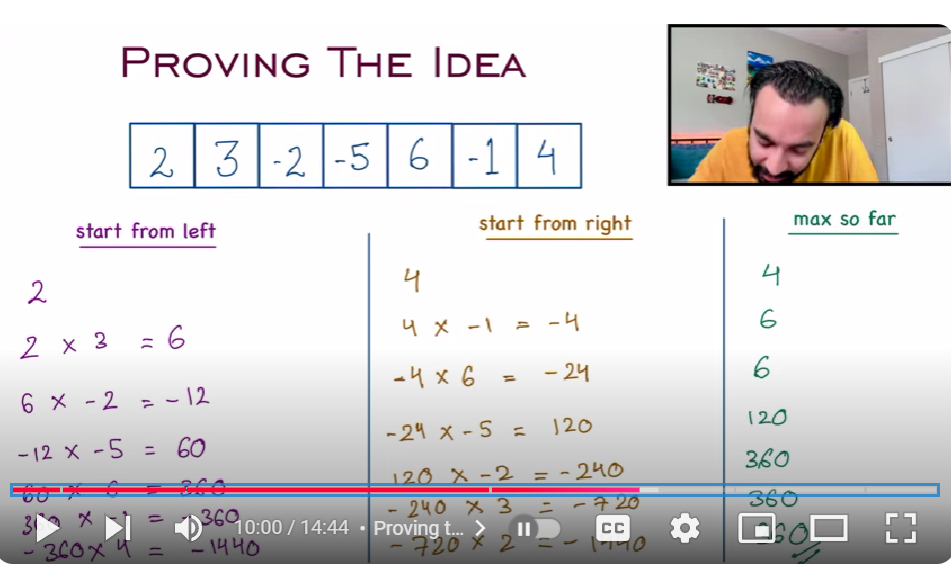 PROVING THE IDEA
2 3 -2 -5 6 -1 4
start from left
2
2 × 3 = 6
6 × -2 = -12
-12 × -5 = 60
60 × 6 = 360
= -360
-360 × 4 = -1440
start from right
4
4 × -1 = -4
-4 × 6 = -24
-24 × -5 = 120
120 × -2 = -240
-240 × 3 = -720
-720 × 2 = -1440
max so far
4
6
6
120
360
360
360
10:00 / 14:44 • Proving t...
CC